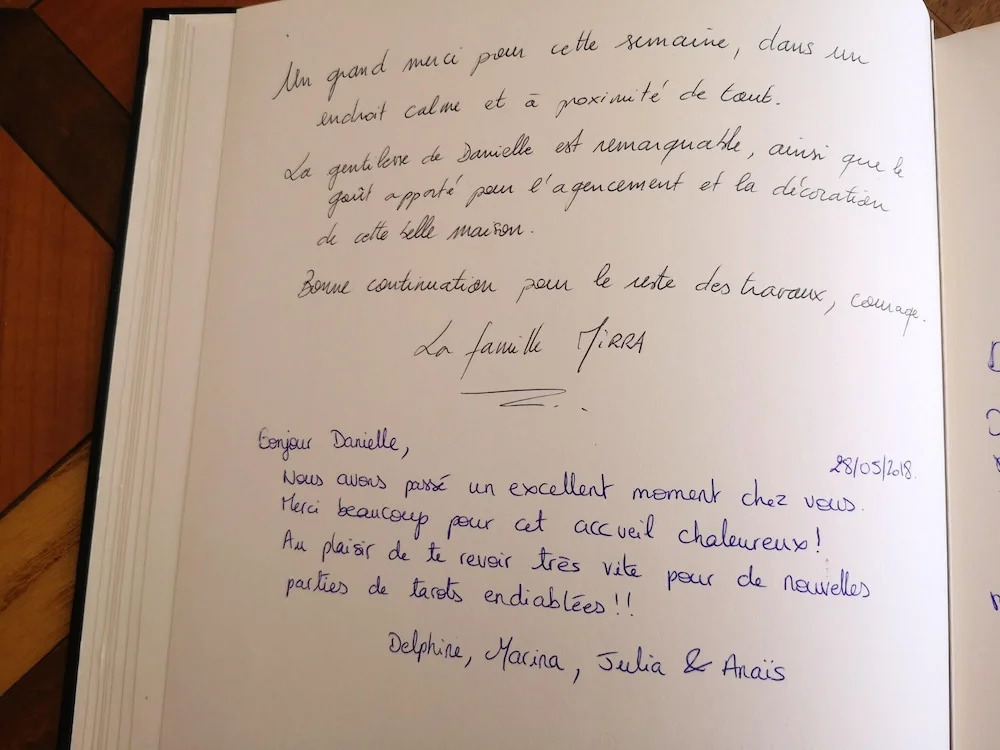 Un grand merci pour cette semaine, dans un
endroit calme et à proximité de tout.
La gentillesse de Danielle est remarquable, ainsi que le
goût apporté pour l'agencement et la décoration
de cette belle maison.
Bonne continuation pour le reste des travaux, courage.
La famille MIRRA
Bonjour Danielle,
28/05/2018.
Nous avons passé un excellent moment chez vous.
Merci beaucoup pour cet accueil chaleureux !
Au plaisir de te revoir très vite pour de nouvelles
parties de tarots endiablées !!
Delphine, Marina, Julia & Anaïs